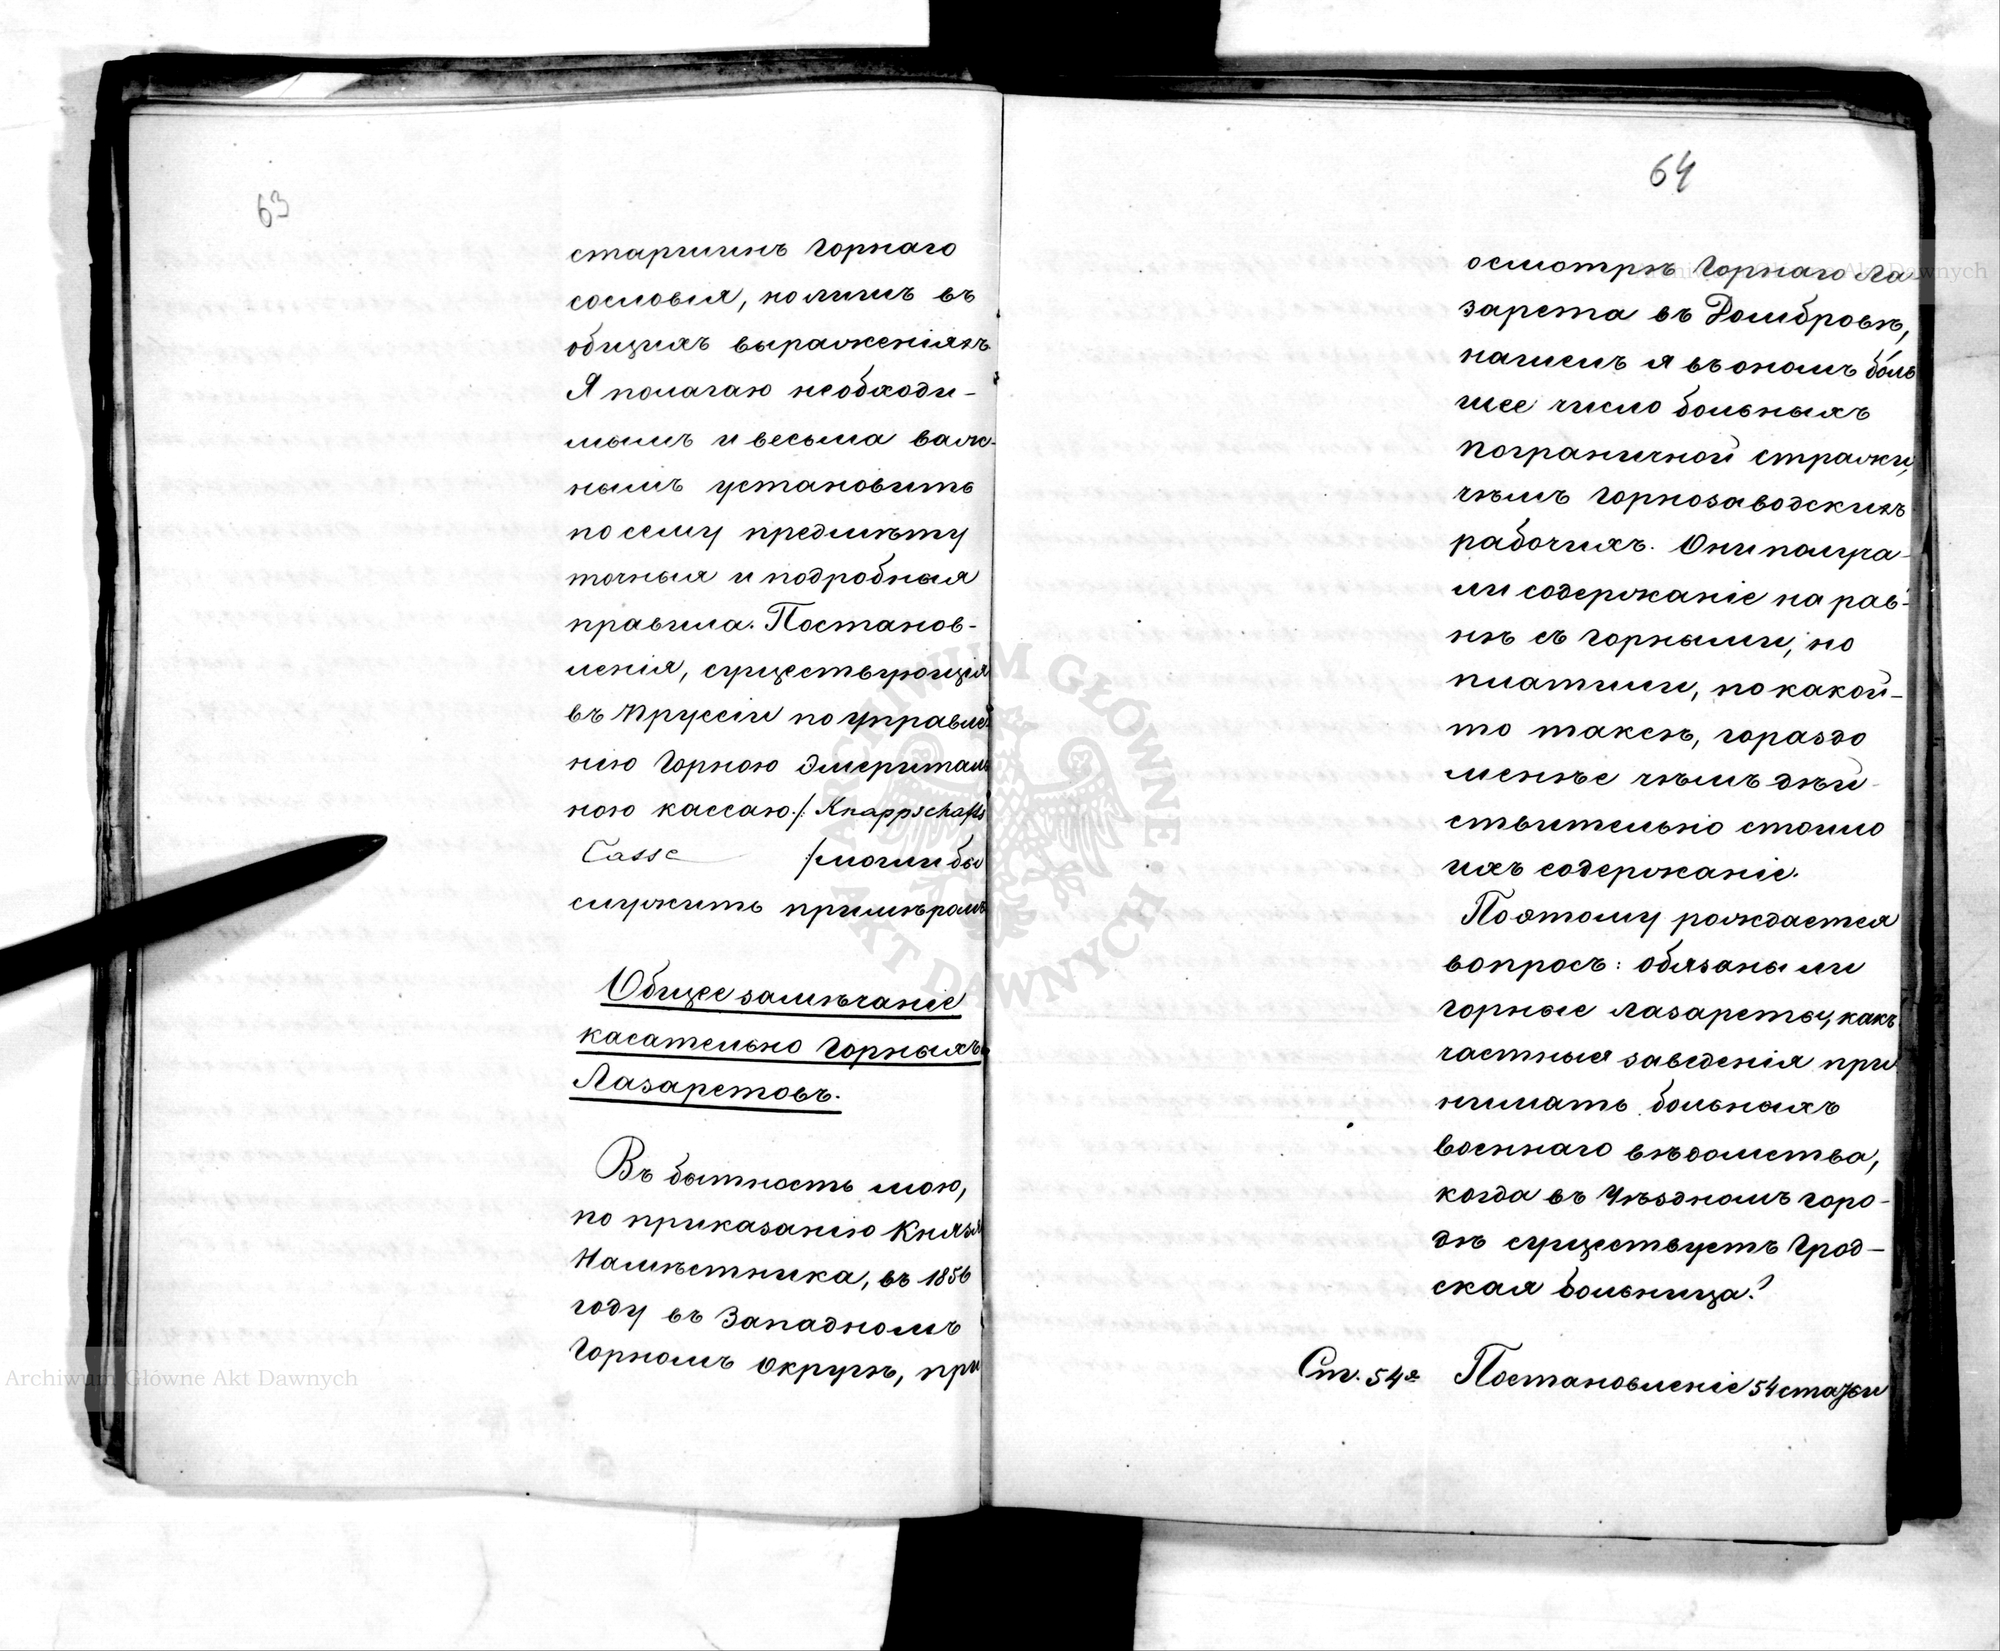 63
старшинъ Горнаго
сословія, но лишь въ
общихъ выраженіяхъ.
Я полагаю необходи-
мымъ и весьма важ-
нымъ установить
по сему предмѣту
точныя и подробныя
правила. Постанов-
ленія, существующія
въ Пруссіи по управле-
нію Горною Эмериталь
ною кассаю /: Knappschafts
Casse :/ могли бы
служить примѣромъ
Общее замѣчаніе
касательно Горныхъ
Лазаретовъ.
Въ бытность мою,
по приказанію Князя
Намѣстника, въ 1856
году въ Западномъ
Горномъ Округѣ, при
64
осмотрѣ Горнаго Ла-
зарета въ Домбровѣ,
нашелъ я въ ономъ боль
шее число больныхъ
Пограничной Стражи,
чѣмъ Горнозаводскихъ
рабочихъ. Они получа-
ли содержаніе на рав-
нѣ съ Горными, но
платили, по какой-
то таксѣ, гораздо
менѣе чѣмъ дѣй-
ствительно стоило
ихъ содержаніе.
Поэтому рождается
вопросъ: обязаны ли
горные лазареты, какъ
частныя заведенія при
нимать больныхъ
военнаго вѣдомства,
когда въ Уѣздномъ горо-
дѣ существуетъ Град-
ская больница?
Ст. 54я Постановленіе 54 статьи
Archiwum Główne Akt Dawnych
Archiwum Główne Akt Dawnych
ARCHIWUM GŁÓWNE AKT DAWNYCH